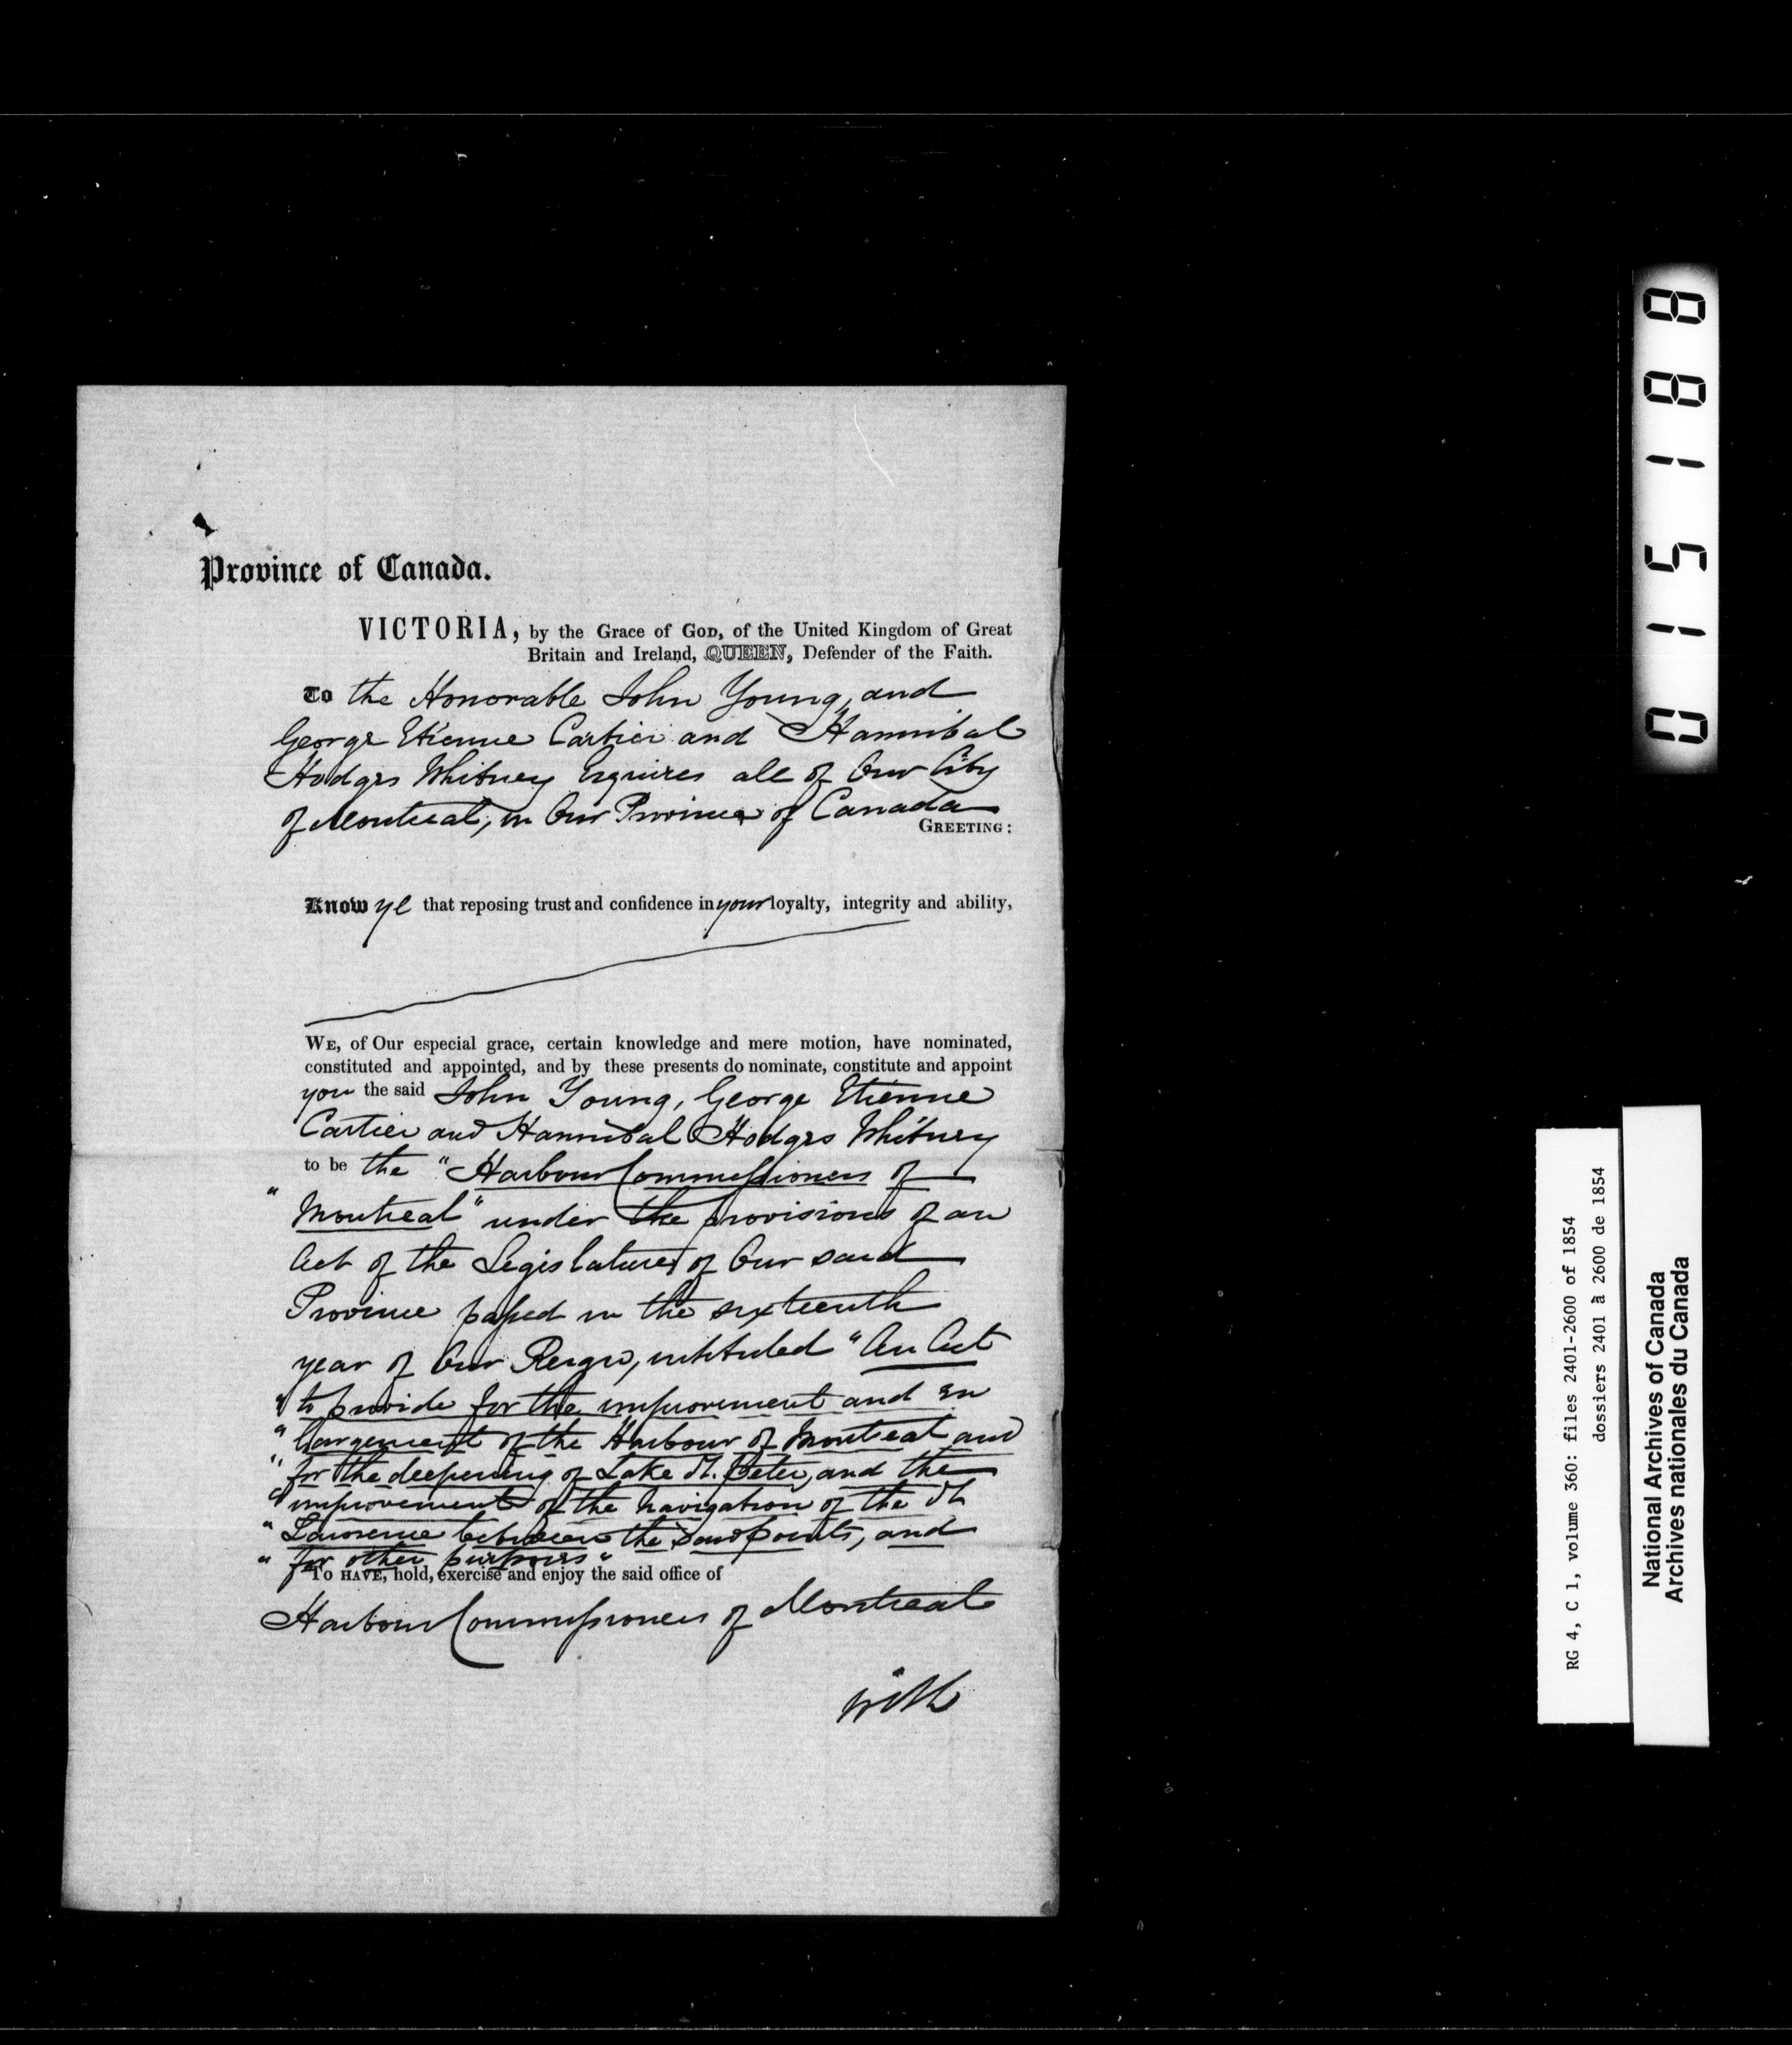 Province of Canada.
VICTORIA, by the Grace of GOD, of the United Kingdom of Great
Britain and Ireland, QUEEN, Defender of the Faith.
To the Honorable John Young, and
George Etienne Cartier and Hannibal
Hodges Whitney Esquires all of Our City
of Montreal, in Our Province of Canada
GREETING:
Know ye that reposing trust and confidence in your loyalty, integrity and ability,
WE, of Our especial grace, certain knowledge and mere motion, have nominated,
constituted and appointed, and by these presents do nominate, constitute and appoint
you the said John Young, George Etienne
Cartier and Hannibal Hodges Whitney
to be the "Harbour Commissioners of
"Montreal" under the provisions of an
Act of the Legislature of Our said
Province passed in the sixteenth
year of Our Reign, intituled "An Act
"to provide for the improvement and en
"largement of the Harbour of Montreal and
"for the deepening of Lake St. Peter, and the
"improvement of the Navigation of the St.
"Lawrence between the said points, and
"for other purposes"
TO HAVE, hold, exercise and enjoy the said office of
Harbour Commissioners of Montreal
with
015188
RG 4, C 1, volume 360: files 2401-2600 of 1854
dossiers 2401 à 2600 de 1854
National Archives of Canada
Archives nationales du Canada